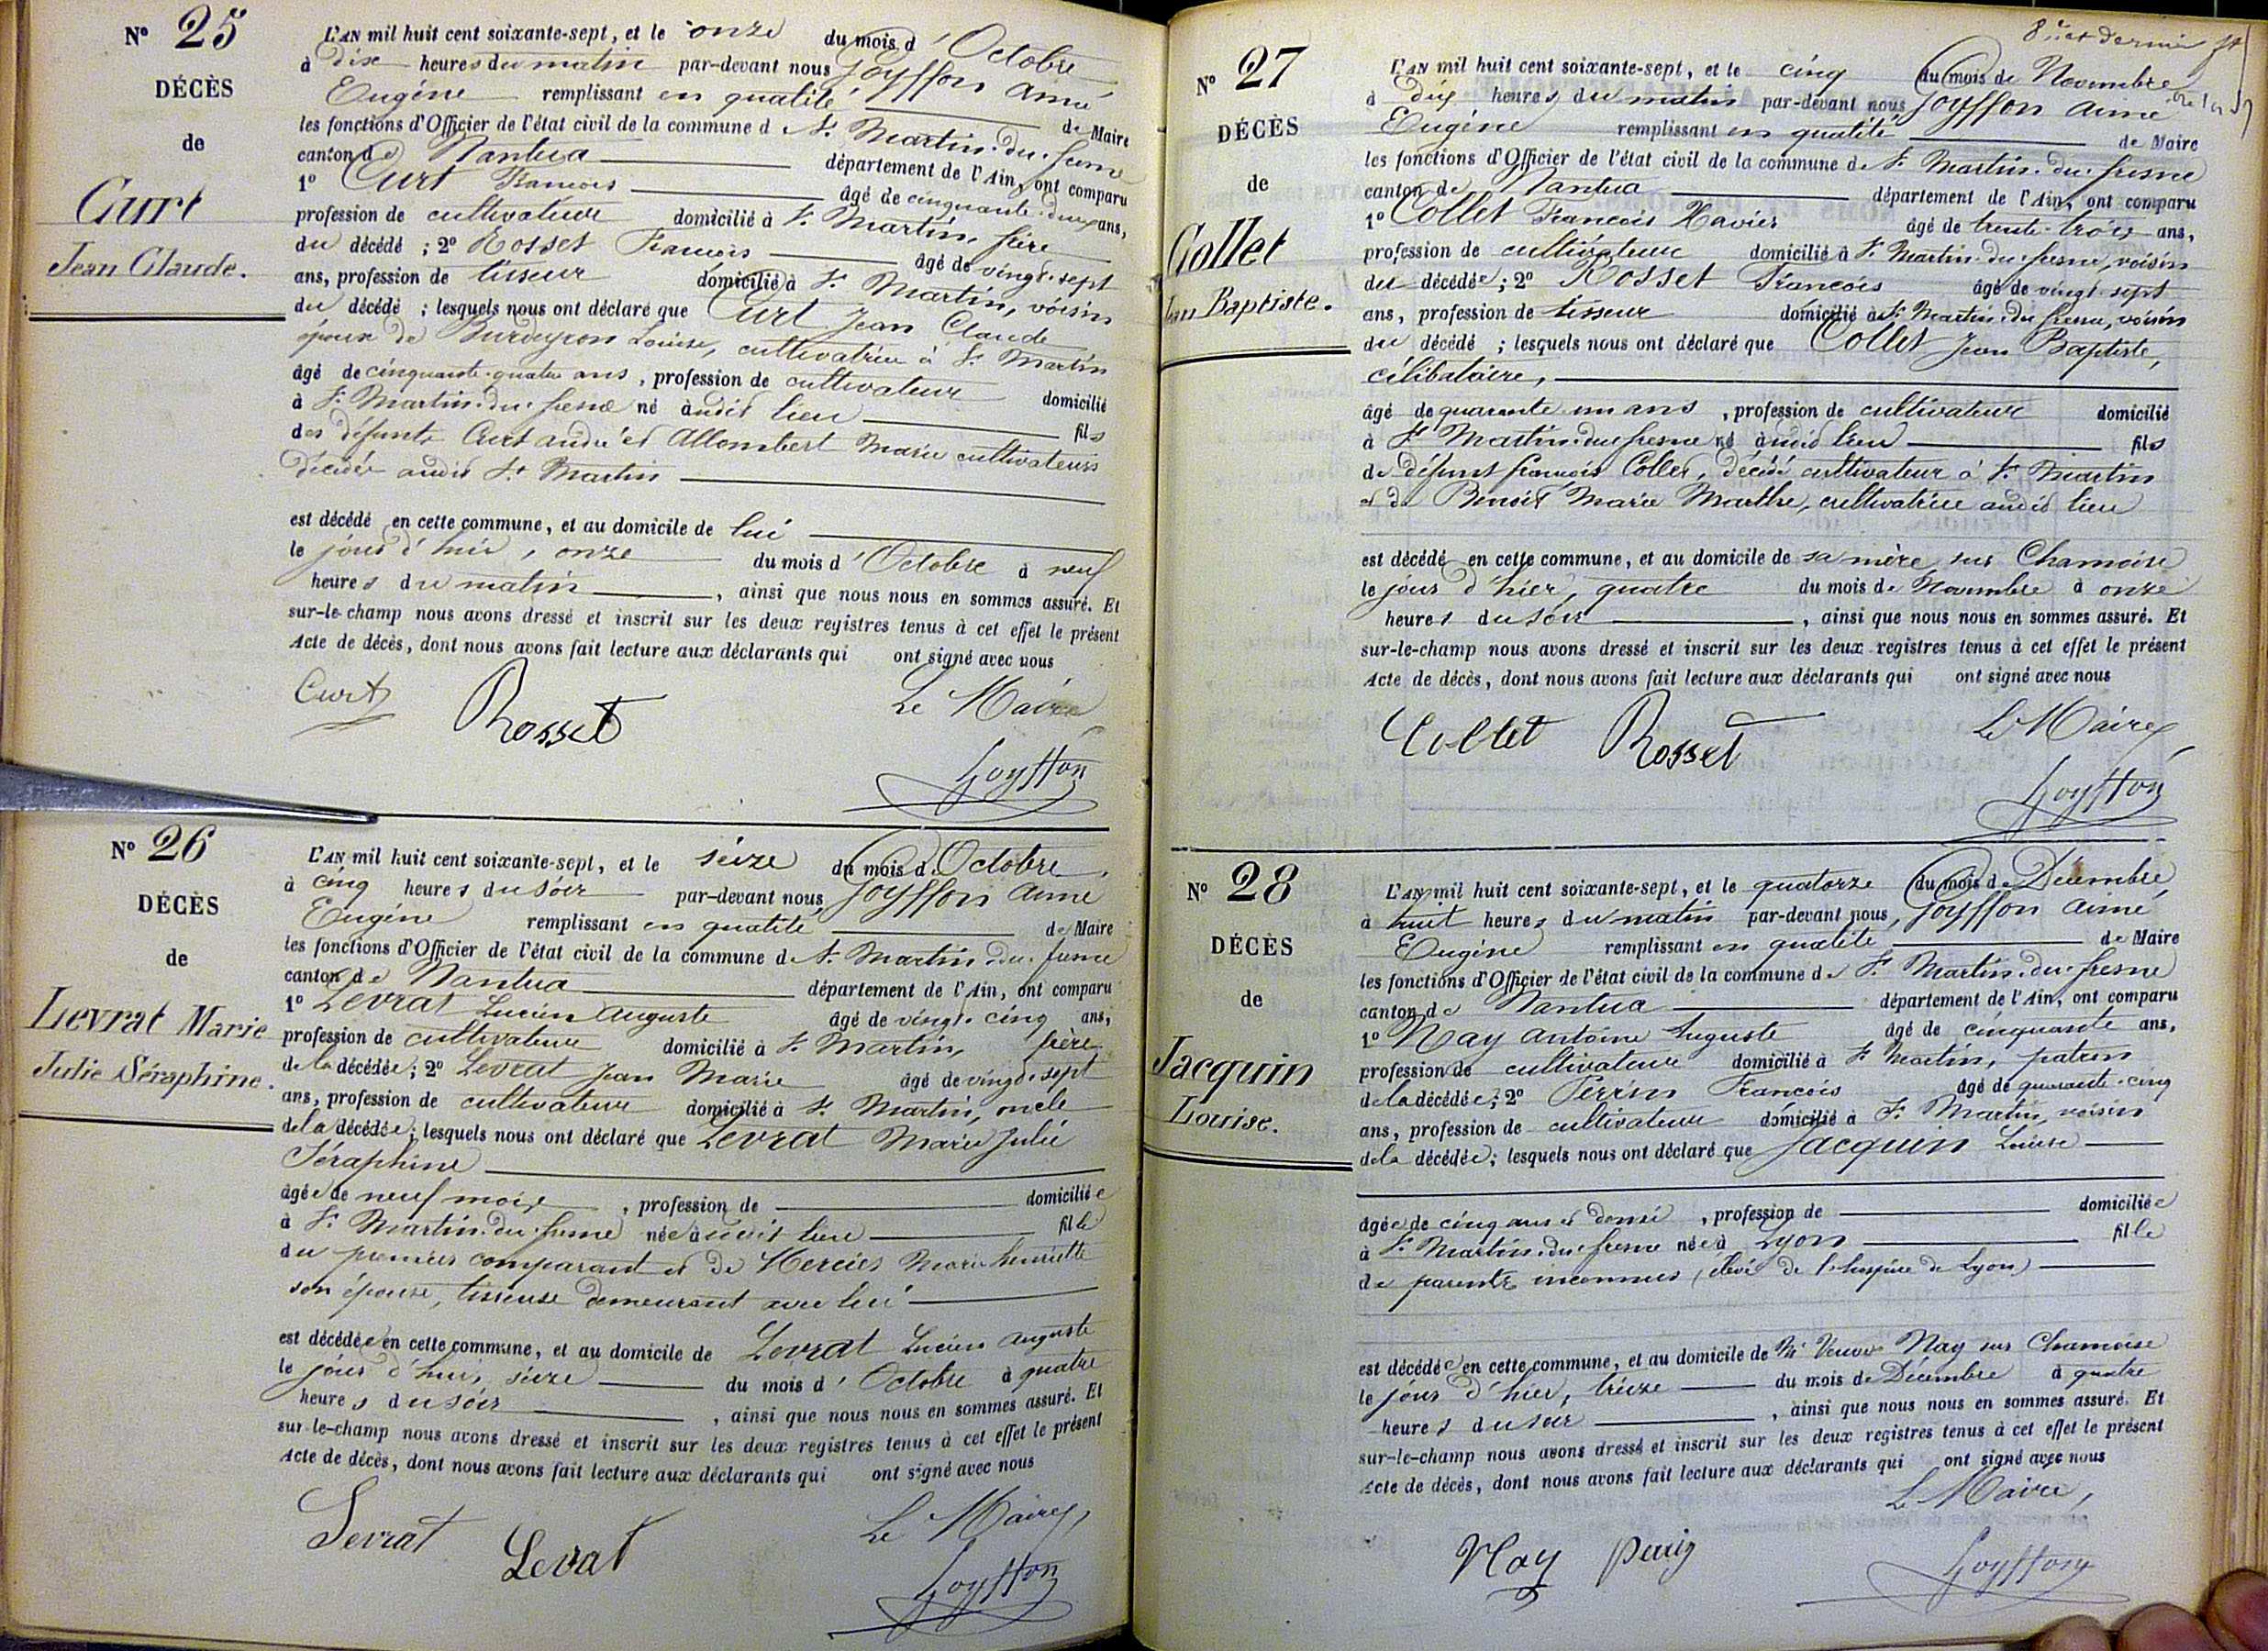 N° 25
DÉCÈS
de
Curt
Jean Claude.
L'AN mil huit cent soixante-sept, et le onze du mois d' Octobre
à dix heures du matin par-devant nous Goyffon aimé
Eugéne remplissant en qualité de Maire
les fonctions d'Officier de l'état civil de la commune de St Martin-du-fresne
canton de Nantua département de l'Ain, ont comparu
1° Curt Francois âgé de cinquante-deux ans,
profession de cultivateur domicilié à St Martin, frère
du décédé ; 2° Rosset Francois âgé de vingt-sept
ans, profession de tisseur domicilié à St Martin, voisin
du décédé ; lesquels nous ont déclaré que Curt Jean Claude
époux de Burdeyron Louise, cultivatrice à St Martin
âgé de cinquante-quatre ans, profession de cultivateur domicilié
à St Martin-du-fresne né àudit lieu fils
des défunts Curt andré et Allombert Marie cultivateurs
décédés audit St Martin
est décédé en cette commune, et au domicile de lui
le jour d'hui, onze du mois d' Octobre à neuf
heures du matin, ainsi que nous nous en sommes assuré. Et
sur-le-champ nous avons dressé et inscrit sur les deux registres tenus à cet effet le présent
Acte de décès, dont nous avons fait lecture aux déclarants qui ont signé avec nous
Curt Rosset Le Maire
Goyffon
N° 26
DÉCÈS
de
Levrat Marie
Julie Séraphine.
L'AN mil huit cent soixante-sept, et le seize du mois d' Octobre
à cinq heures du soir par-devant nous, Goyffon aimé
Eugéne remplissant en qualité de Maire
les fonctions d'Officier de l'état civil de la commune de St Martin-du-fresne
canton de Nantua département de l'Ain, ont comparu
1° Levrat Lucien Auguste âgé de vingt-cinq ans,
profession de cultivateur domicilié à St Martin, frère
de la décédée ; 2° Levrat Jean Marie âgé de vingt-sept
ans, profession de cultivateur domicilié à St Martin, oncle
de la décédée ; lesquels nous ont déclaré que Levrat Marie Julie
Séraphine
âgée de neuf mois, profession de domiciliée
à St Martin-du-fresne née àudit lieu fille
du premier comparant et de Mercier Marie henriette
son épouse, tisseuse demeurant avec lui
est décédée en cette commune, et au domicile de Levrat Lucien Auguste
le jour d'hui, seize du mois d' Octobre à quatre
heures du soir, ainsi que nous nous en sommes assuré. Et
sur-le-champ nous avons dressé et inscrit sur les deux registres tenus à cet effet le présent
Acte de décès, dont nous avons fait lecture aux déclarants qui ont signé avec nous
Levrat Levrat Le Maire,
Goyffon
8e et dernier
N° 27
DÉCÈS
de
Collet
Jean Baptiste.
L'AN mil huit cent soixante-sept, et le cinq du mois de Novembre
à dix heures du matin par-devant nous Goyffon aimé
Eugéne remplissant en qualité de Maire
les fonctions d'Officier de l'état civil de la commune de St Martin-du-fresne
canton de Nantua département de l'Ain, ont comparu
1° Collet Francois Xavier âgé de trente-trois ans,
profession de cultivateur domicilié à St Martin-du-fresne, voisin
du décédé ; 2° Rosset Francois âgé de vingt-sept
ans, profession de tisseur domicilié à St Martin-du-fresne, voisin
du décédé ; lesquels nous ont déclaré que Collet Jean Baptiste,
célibataire,
âgé de quarante un ans, profession de cultivateur domicilié
à St Martin-du-fresne né àudit lieu fils
de défunt francois Collet, décédé cultivateur à St Martin
et de Benoit Marie Marthe, cultivatrice audit lieu
est décédé en cette commune, et au domicile de sa mère, sur Chamoise
le jour d'hier, quatre du mois de Novembre à onze
heures du soir, ainsi que nous nous en sommes assuré. Et
sur-le-champ nous avons dressé et inscrit sur les deux registres tenus à cet effet le présent
Acte de décès, dont nous avons fait lecture aux déclarants qui ont signé avec nous
Collet Rosset Le Maire,
Goyffon
N° 28
DÉCÈS
de
Jacquin
Louise.
L'AN mil huit cent soixante-sept, et le quatorze du mois de Décembre,
à huit heures du matin par-devant nous, Goyffon aimé
Eugéne remplissant en qualité de Maire
les fonctions d'Officier de l'état civil de la commune de St Martin-du-fresne
canton de Nantua département de l'Ain, ont comparu
1° Nay Antoine Auguste âgé de cinquante ans,
profession de cultivateur domicilié à St Martin, patron
de la décédée ; 2° Perrin Francois âgé de quarante-cinq
ans, profession de cultivateur domicilié à St Martin, voisin
de la décédée ; lesquels nous ont déclaré que Jacquin Louise
âgée de cinq ans et demi, profession de domiciliée
à St Martin-du-fresne née à Lyon fille
de parents inconnus (élève de l'hospice de Lyon)
est décédée en cette commune, et au domicile de Me Veuve Nay sur Chamoise
le jour d'hier, treize du mois de Décembre à quatre
heures du soir, ainsi que nous nous en sommes assuré. Et
sur-le-champ nous avons dressé et inscrit sur les deux registres tenus à cet effet le présent
Acte de décès, dont nous avons fait lecture aux déclarants qui ont signé avec nous
Le Maire,
Nay Perrin Goyffon